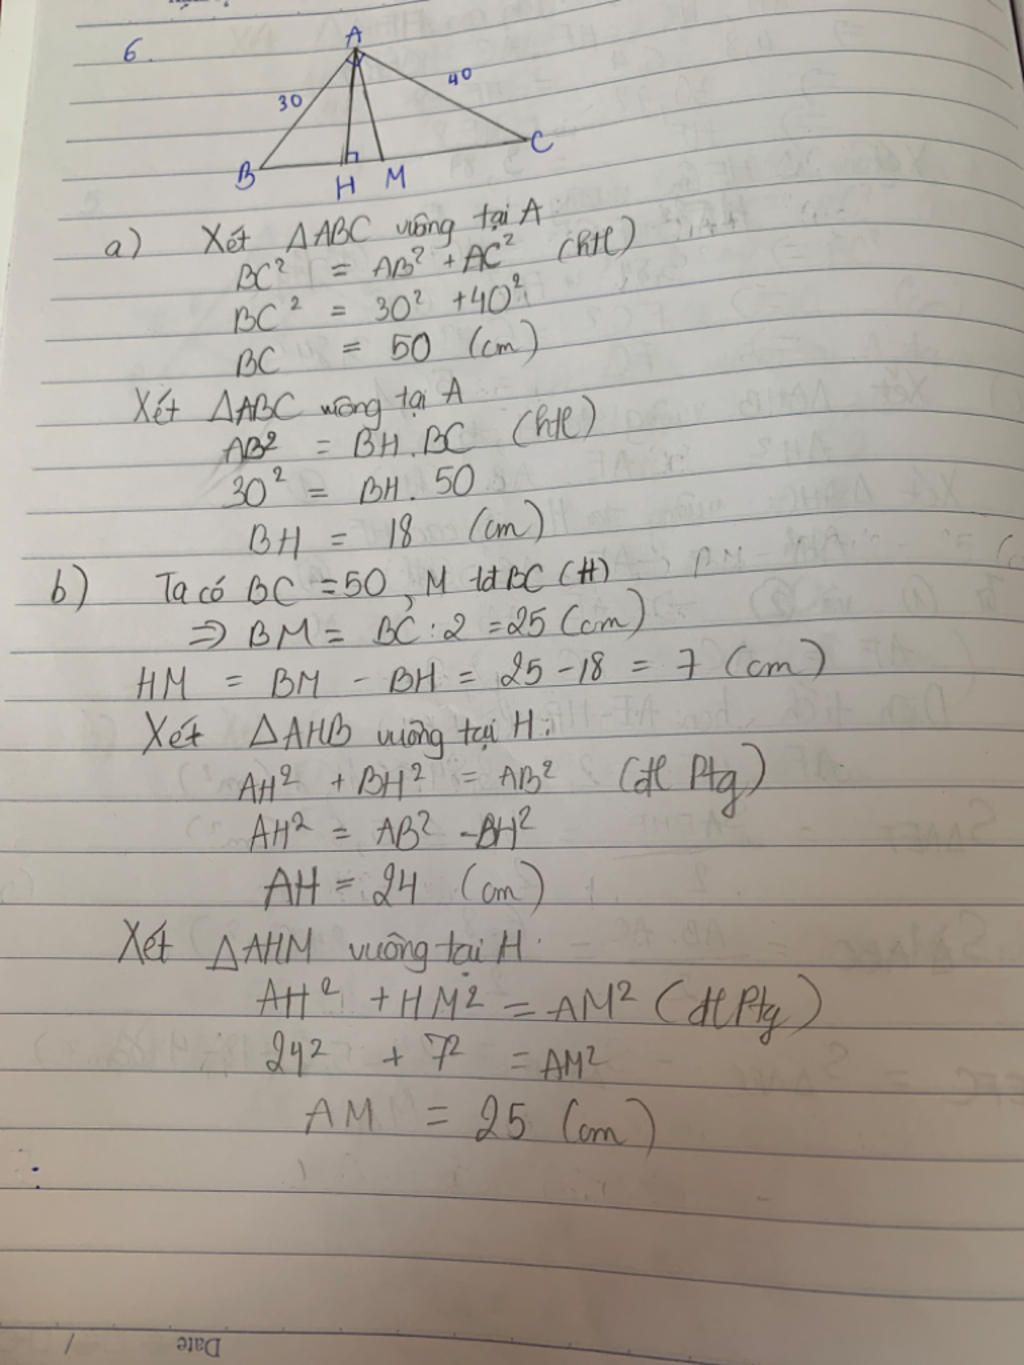 6.
A
30
40
B
H
M
C
a) Xét ΔABC vuông tại A
BC² = AB² + AC² (htl)
BC² = 30² + 40²
BC = 50 (cm)
Xét ΔABC vuông tại A
AB² = BH.BC (htl)
30² = BH.50
BH = 18 (cm)
b) Ta có BC = 50, M tđ BC (H)
⇒ BM = BC : 2 = 25 (cm)
HM = BM - BH = 25 - 18 = 7 (cm)
Xét ΔAHB vuông tại H:
AH² + BH² = AB² (đl Ptg)
AH² = AB² - BH²
AH = 24 (cm)
Xét ΔAHM vuông tại H
AH² + HM² = AM² (đl Ptg)
24² + 7² = AM²
AM = 25 (cm)
Date /